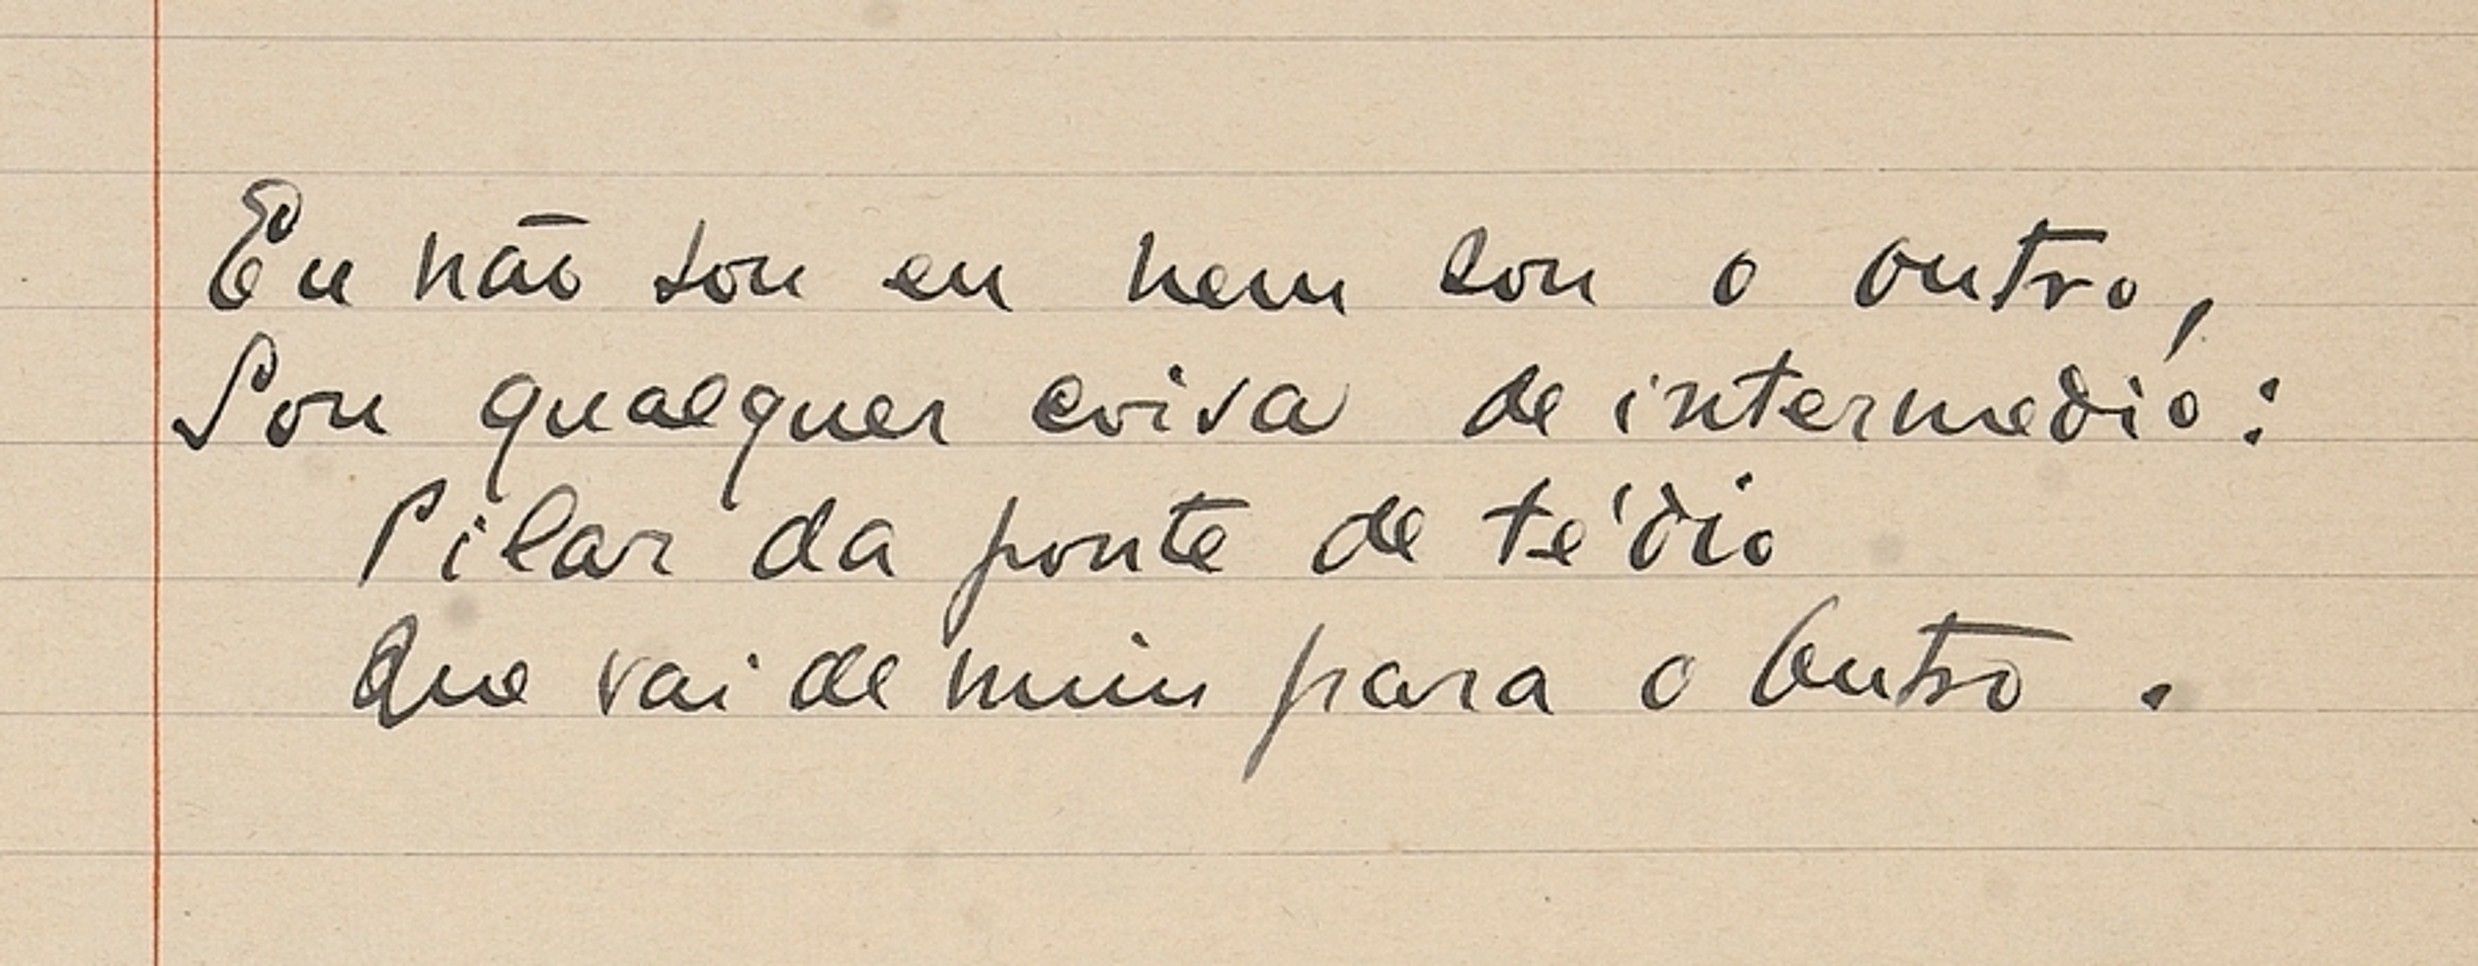 Eu não sou eu nem sou o outro,
Sou qualquer coisa de intermedio:
Pilar da ponte de tédio
Que vai de mim para o Outro.